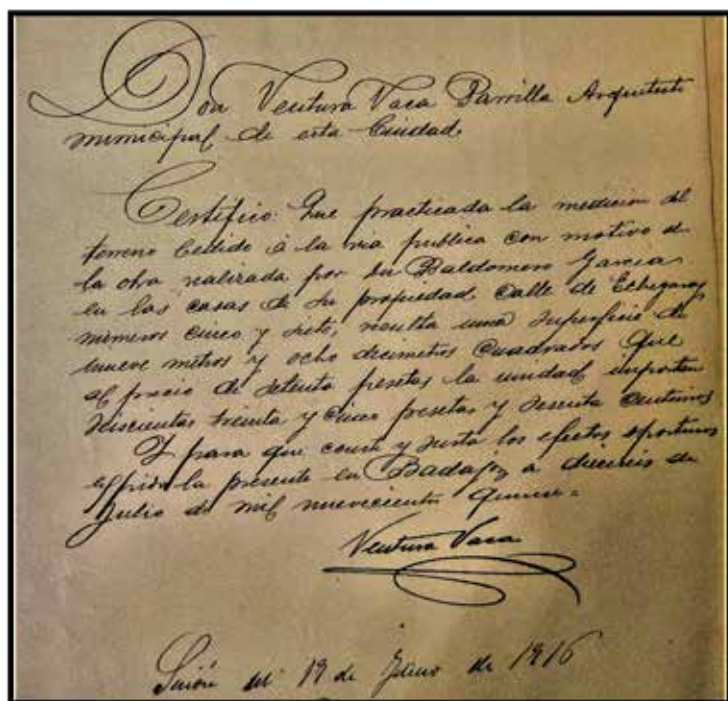 Don Ventura Vaca Parrilla Arquitecto
municipal de esta Ciudad.
Certifico: Que practicada la medicion del
terreno cedido á la via publica con motivo de
la obra realizada por Dn Baldomero Garcia
en las casas de su propiedad, calle de Echegaray
números cinco y siete, resulta una superficie de
nueve metros y ocho decimetros cuadrados que
al precio de setenta pesetas la unidad importan
seiscientas treinta y cinco pesetas y sesenta centimos
Y para que conste y surta los efectos oportunos
expido la presente en Badajoz a dieciseis de
Julio de mil nuevecientos quince =
Ventura Vaca
Sesión del 19 de Enero de 1916